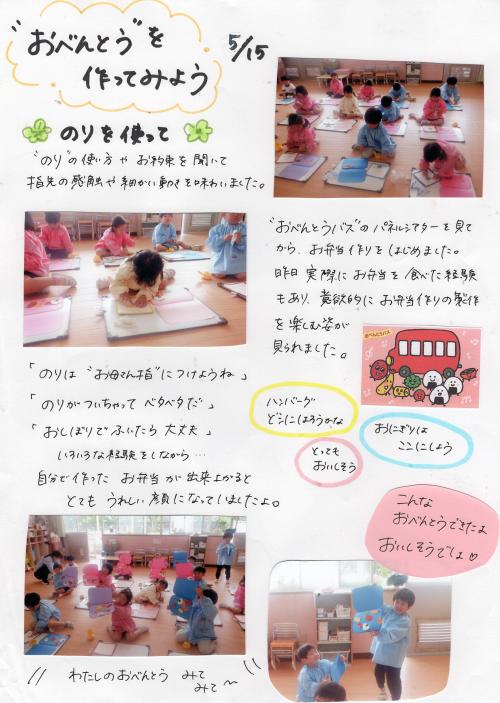 "おべんとう"を
作ってみよう
5/15
のりを使って
"のり"の使い方や お約束を聞いて
指先の感触や細かい動きを味わいました。
"おべんとうバス"のパネルシアターを見て
から、お弁当作りをはじめました。
昨日 実際にお弁当を食べた経験
もあり、意欲的にお弁当作りの製作
を楽しむ姿が
見られました。
おべんとうバス
「のりは"お母さん指"につけようね」
「のりがついちゃって ベタベタだ」
「おしぼりでふいたら 大丈夫」
いろいろな経験をしながら…
自分で作った お弁当が出来上がると
とても うれしい顔になっていましたよ。
ハンバーグ
どこにはろうかな
おにぎりは
ここにしよう
とっても
おいしそう
こんな
おべんとうできたよ
おいしそうでしょ♡
わたしのおべんとう みて
みて～